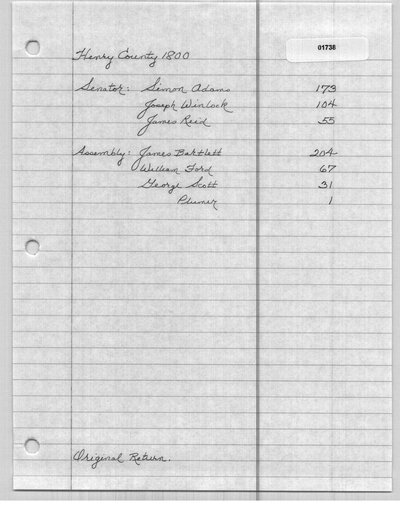 01738
Henry County 1800
Senator: Simon Adams 173
Joseph Winlock 104
James Reid 55
Assembly: James Bartlett 204
William Ford 67
George Scott 31
Plumer 1
Original Return.